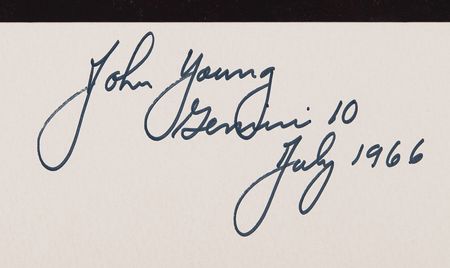 John Young
Gemini 10
July 1966